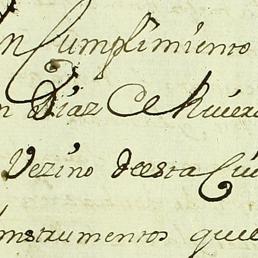 n Cumplimiento
n Diaz de Rivera
Vezino deesta Ciu
Instrumentos que